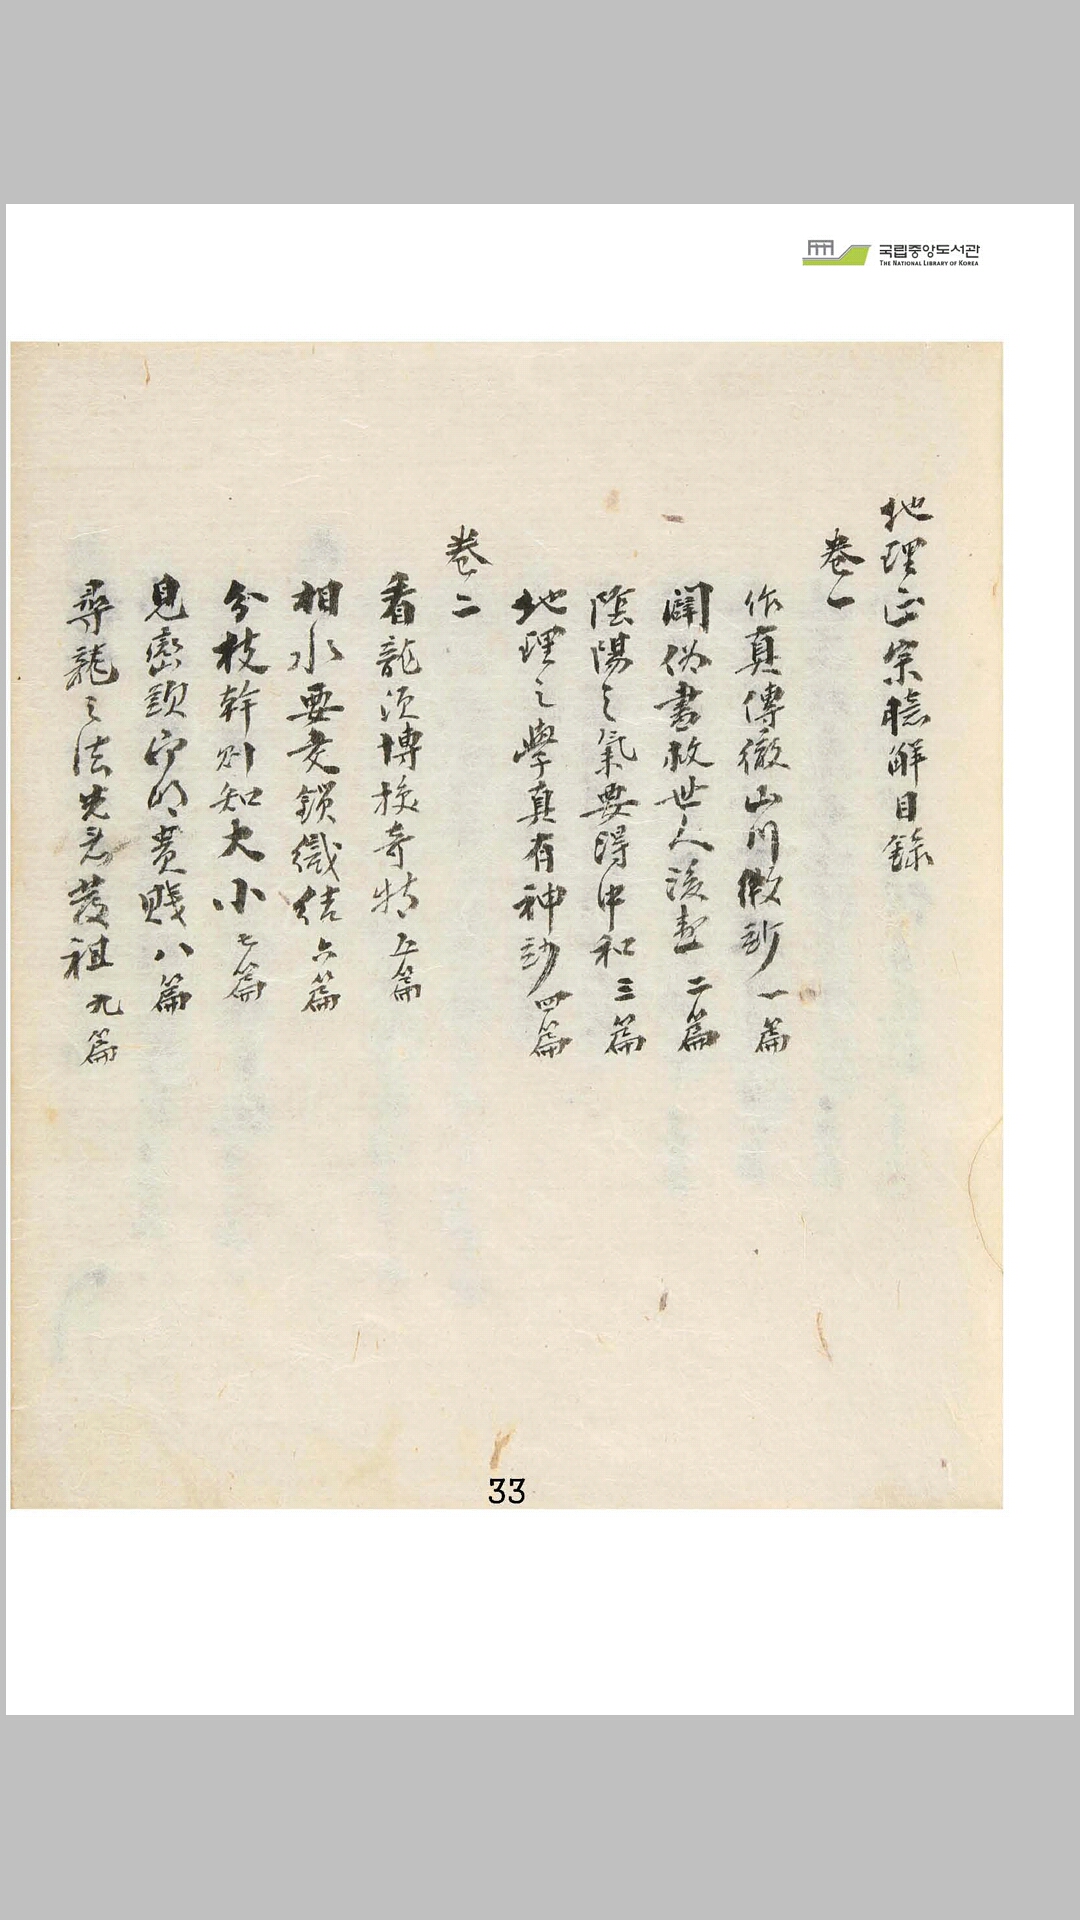 국립중앙도서관
THE NATIONAL LIBRARY OF KOREA
地理正宗臆解目錄
卷一
作真傳徹山川微玅 一篇
闢僞書救世人後慙 二篇
陰陽之氣要得中和 三篇
地理之學真有神玅 四篇
卷二
看龍須博換奇特 五篇
相水要交鎖織結 六篇
分枝幹則知大小 七篇
見巒頭卽明貴賤 八篇
尋龍之法先看發祖 九篇
33